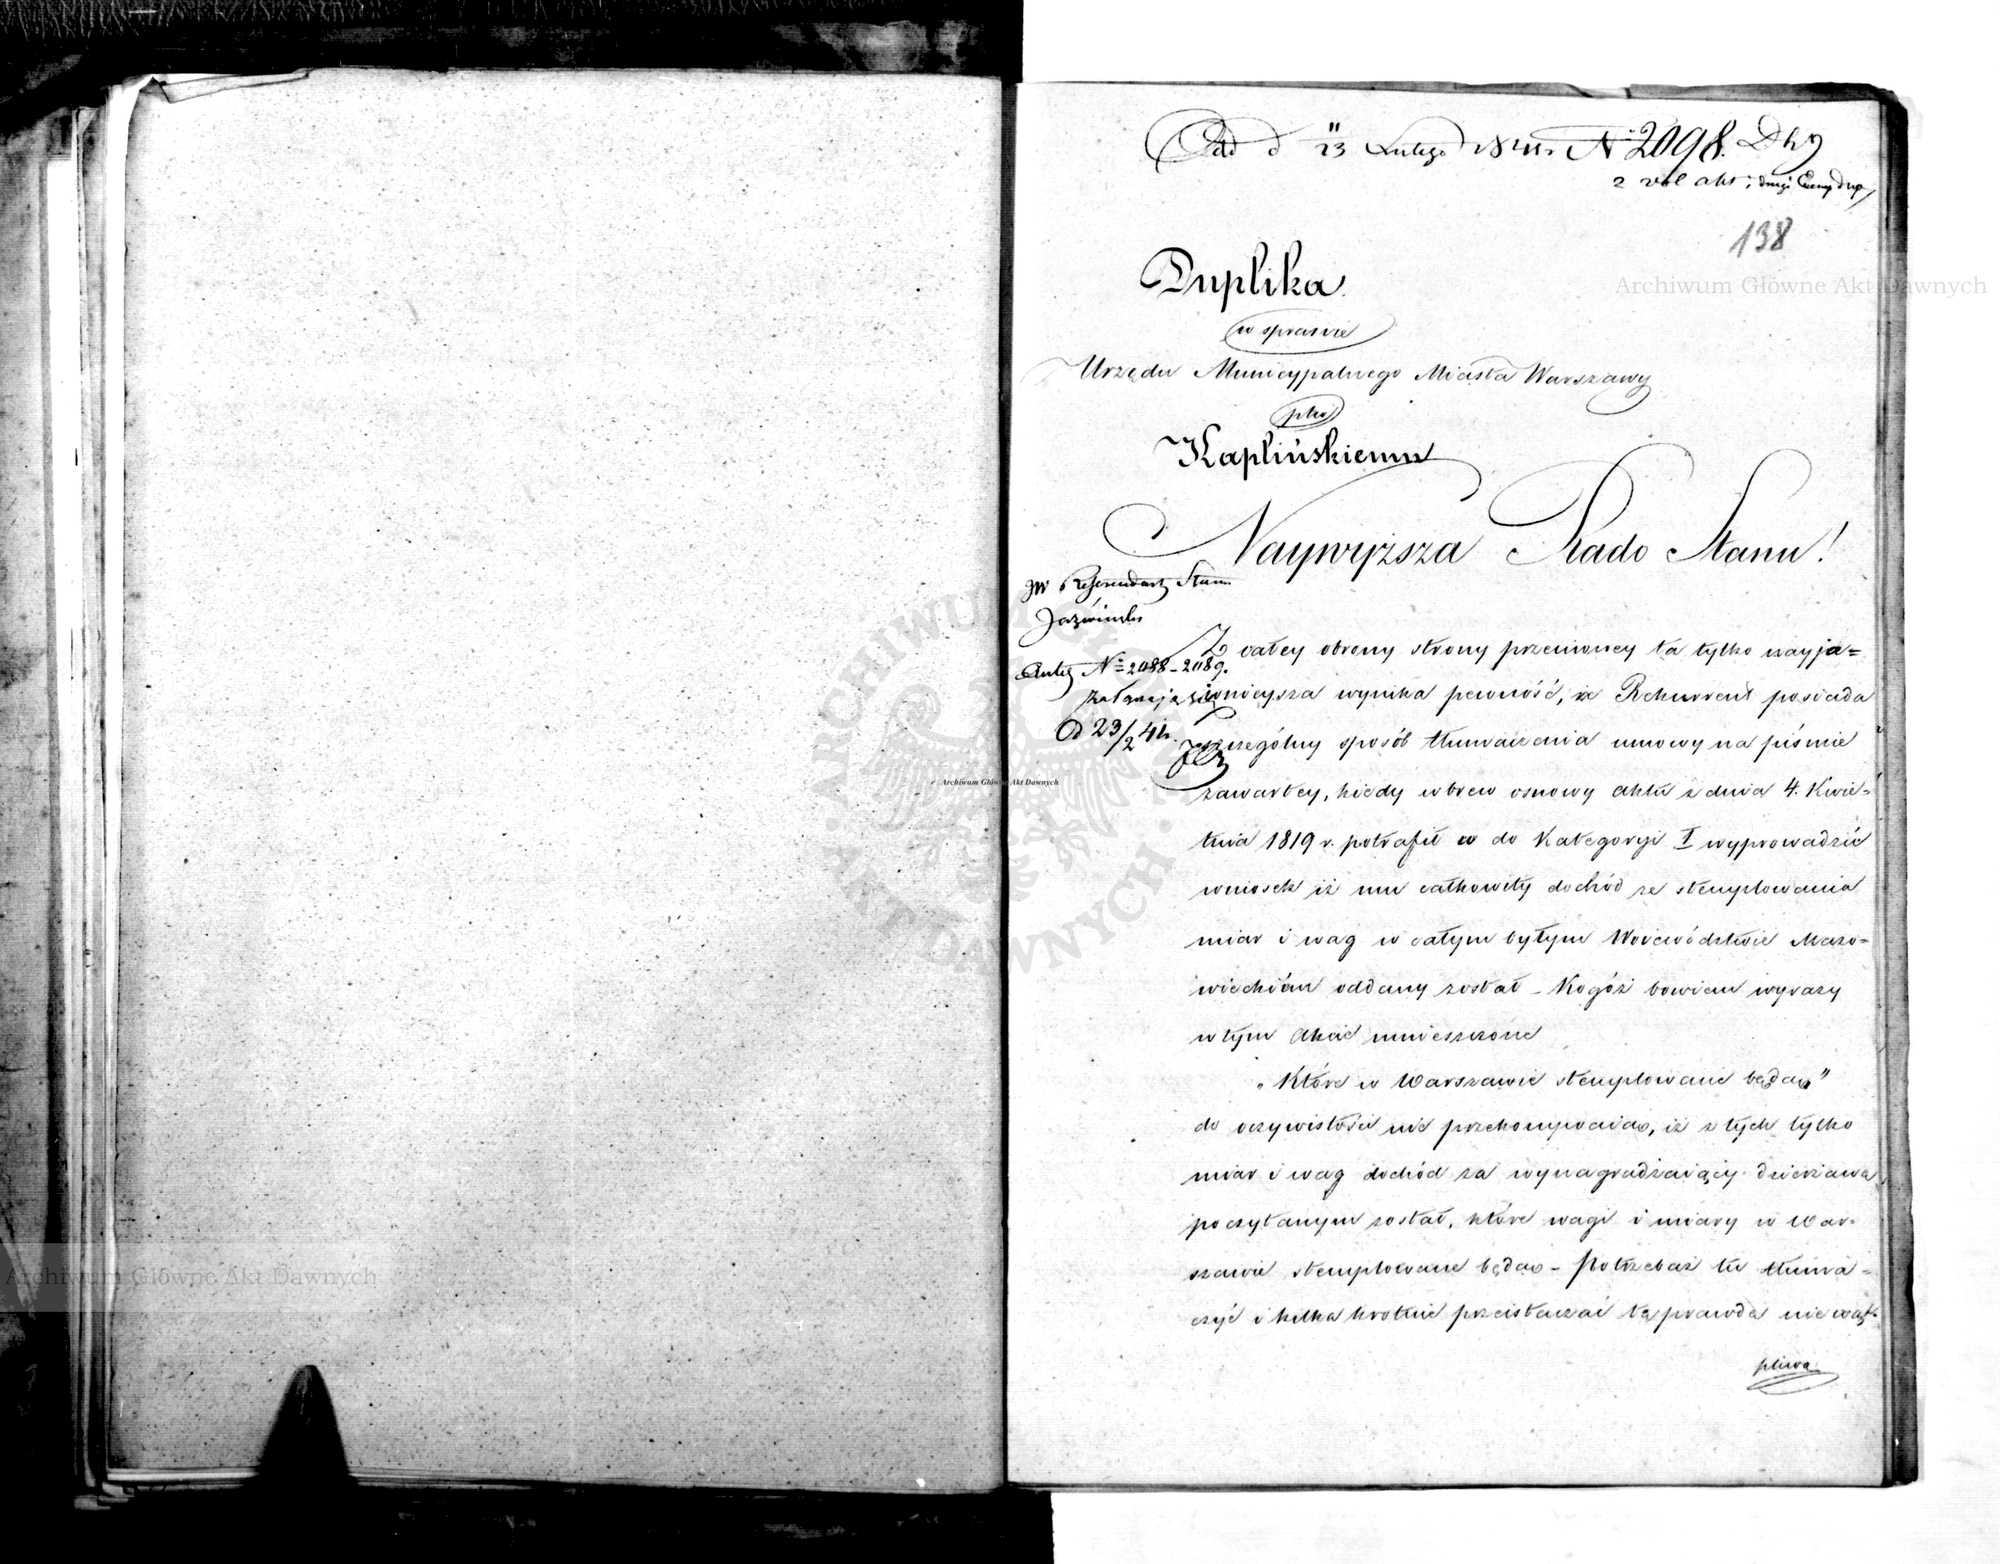 Odd d 11/23 Lutego 1841 r N 2098. Dhy
2 vol akt i drugi Exemp Dup
138
Archiwum Główne Akt Dawnych
Duplika
w sprawie
Urzędu Municypalnego Miasta Warszawy
plko
Kaplińskiemu
Naywyższa Rado Stanu!
JW Referendarz Stanu
Jaźwiński
Z całey obrony strony przeciwney ta tylko nayja=
Akta N 2088-2089.
załączają się
śnieysza wynika pewność, że Rekurrent posiada
d 23/2 41 r.
szczególny sposób tłumaczenia umowy na piśmie
zawartey, kiedy wbrew osnowy aktu z dnia 4. Kwie=
tnia 1819 r. potrafił w do Kategoryi I wyprowadzić
wniosek iż mu całkowity dochód ze stemplowania
miar i wag w całym byłym Woiewództwie Mazo=
wieckiém oddany został - Kogóż bowiem wyrazy
w tym Akcie umieszczone
„Które w Warszawie stemplowane będą"
do oczywistości nie przekonywaią, iż z tych tylko
miar i wag dochód za wynagradzaiący dzierżawę
poczytanym został, które wagi i miary w War-
szawie stemplowane będą - Potrzebaż tu tłuma-
czyć i kilka krotnie przeistaczać tę prawdę nie wąt-
pliwą
ARCHIWUM GŁÓWNE AKT DAWNYCH
Archiwum Główne Akt Dawnych
Archiwum Główne Akt Dawnych